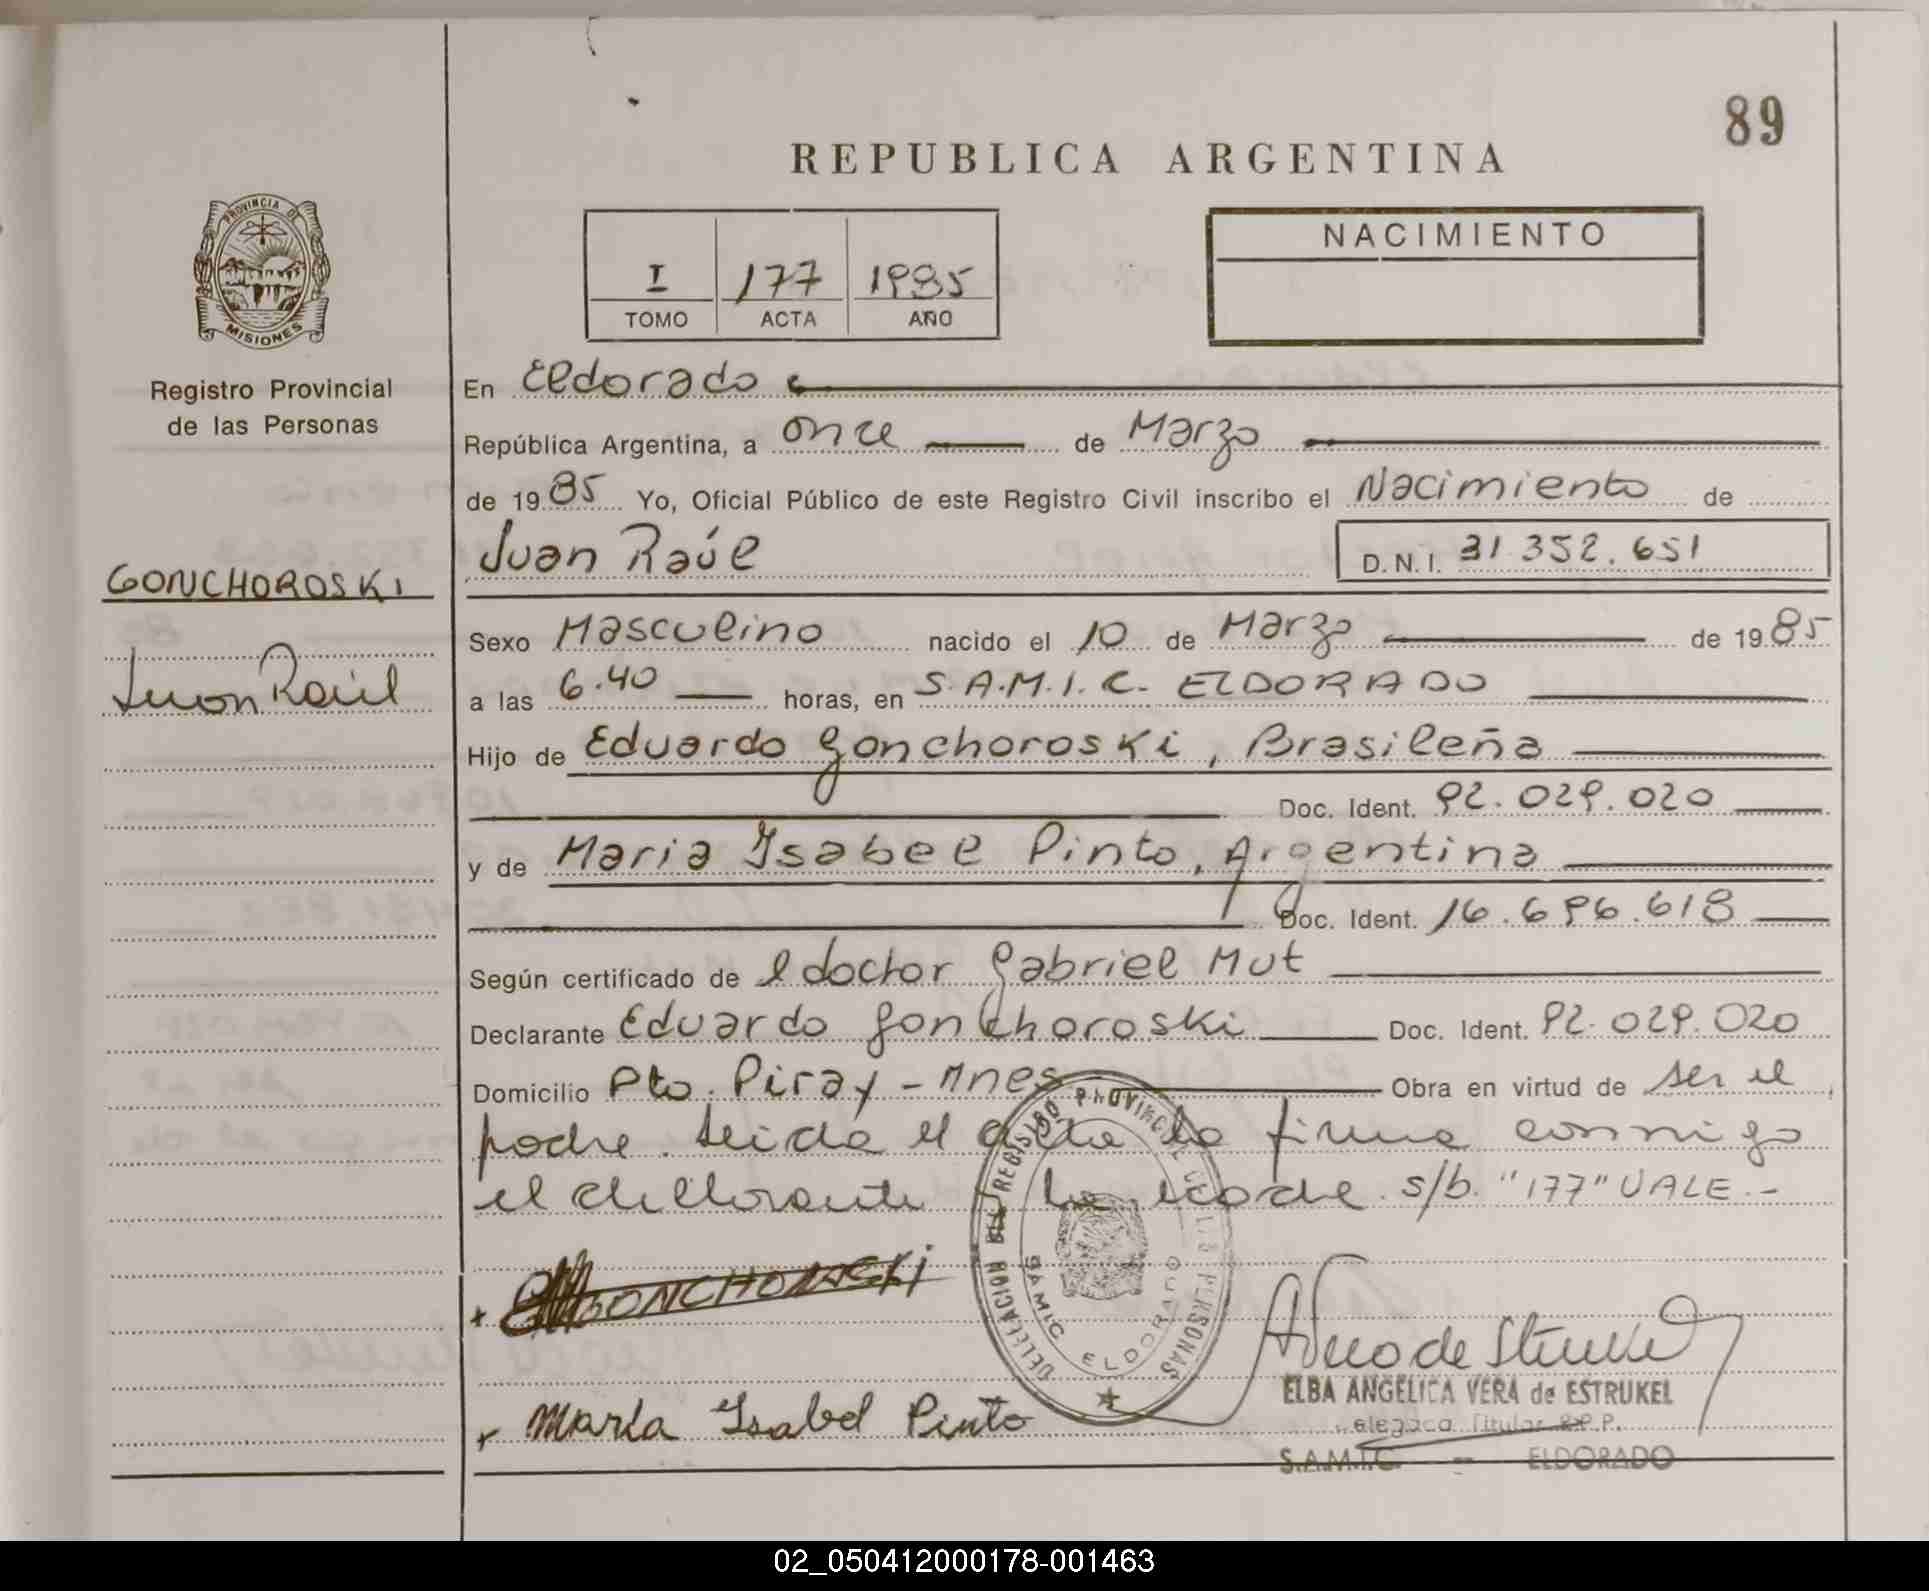 89
REPUBLICA ARGENTINA
PROVINCIA DE
MISIONES
Registro Provincial
de las Personas
GONCHOROSKI
Juan Raúl
I 177 1985
TOMO ACTA AÑO
NACIMIENTO
En Eldorado
República Argentina, a once de Marzo
de 1985 Yo, Oficial Público de este Registro Civil inscribo el Nacimiento de
Juan Raúl D.N.I. 31 352.651
Sexo Masculino nacido el 10 de Marzo de 1985
a las 6.40 horas, en S.A.M.I.C. ELDORADO
Hijo de Eduardo Gonchoroski, Brasileña
Doc. Ident. 92.029.020
y de Maria Ysabel Pinto, Argentina
Doc. Ident. 16.696.618
Según certificado de l doctor Gabriel Mut
Declarante Eduardo Gonchoroski Doc. Ident. 92.029.020
Domicilio Pto. Piray - Mnes Obra en virtud de ser el
padre. Leida el acta la firma conmigo
el declarante y la madre. s/b. "177" VALE.-
DELEGACION DEL REGISTRO PROVINCIAL DE LAS PERSONAS
SAMIC ELDORADO
GONCHOROSKI
María Ysabel Pinto
ELBA ANGELICA VERA de ESTRUKEL
Delegada Titular R.P.P.
S.A.M.I.C. - ELDORADO
02_050412000178-001463